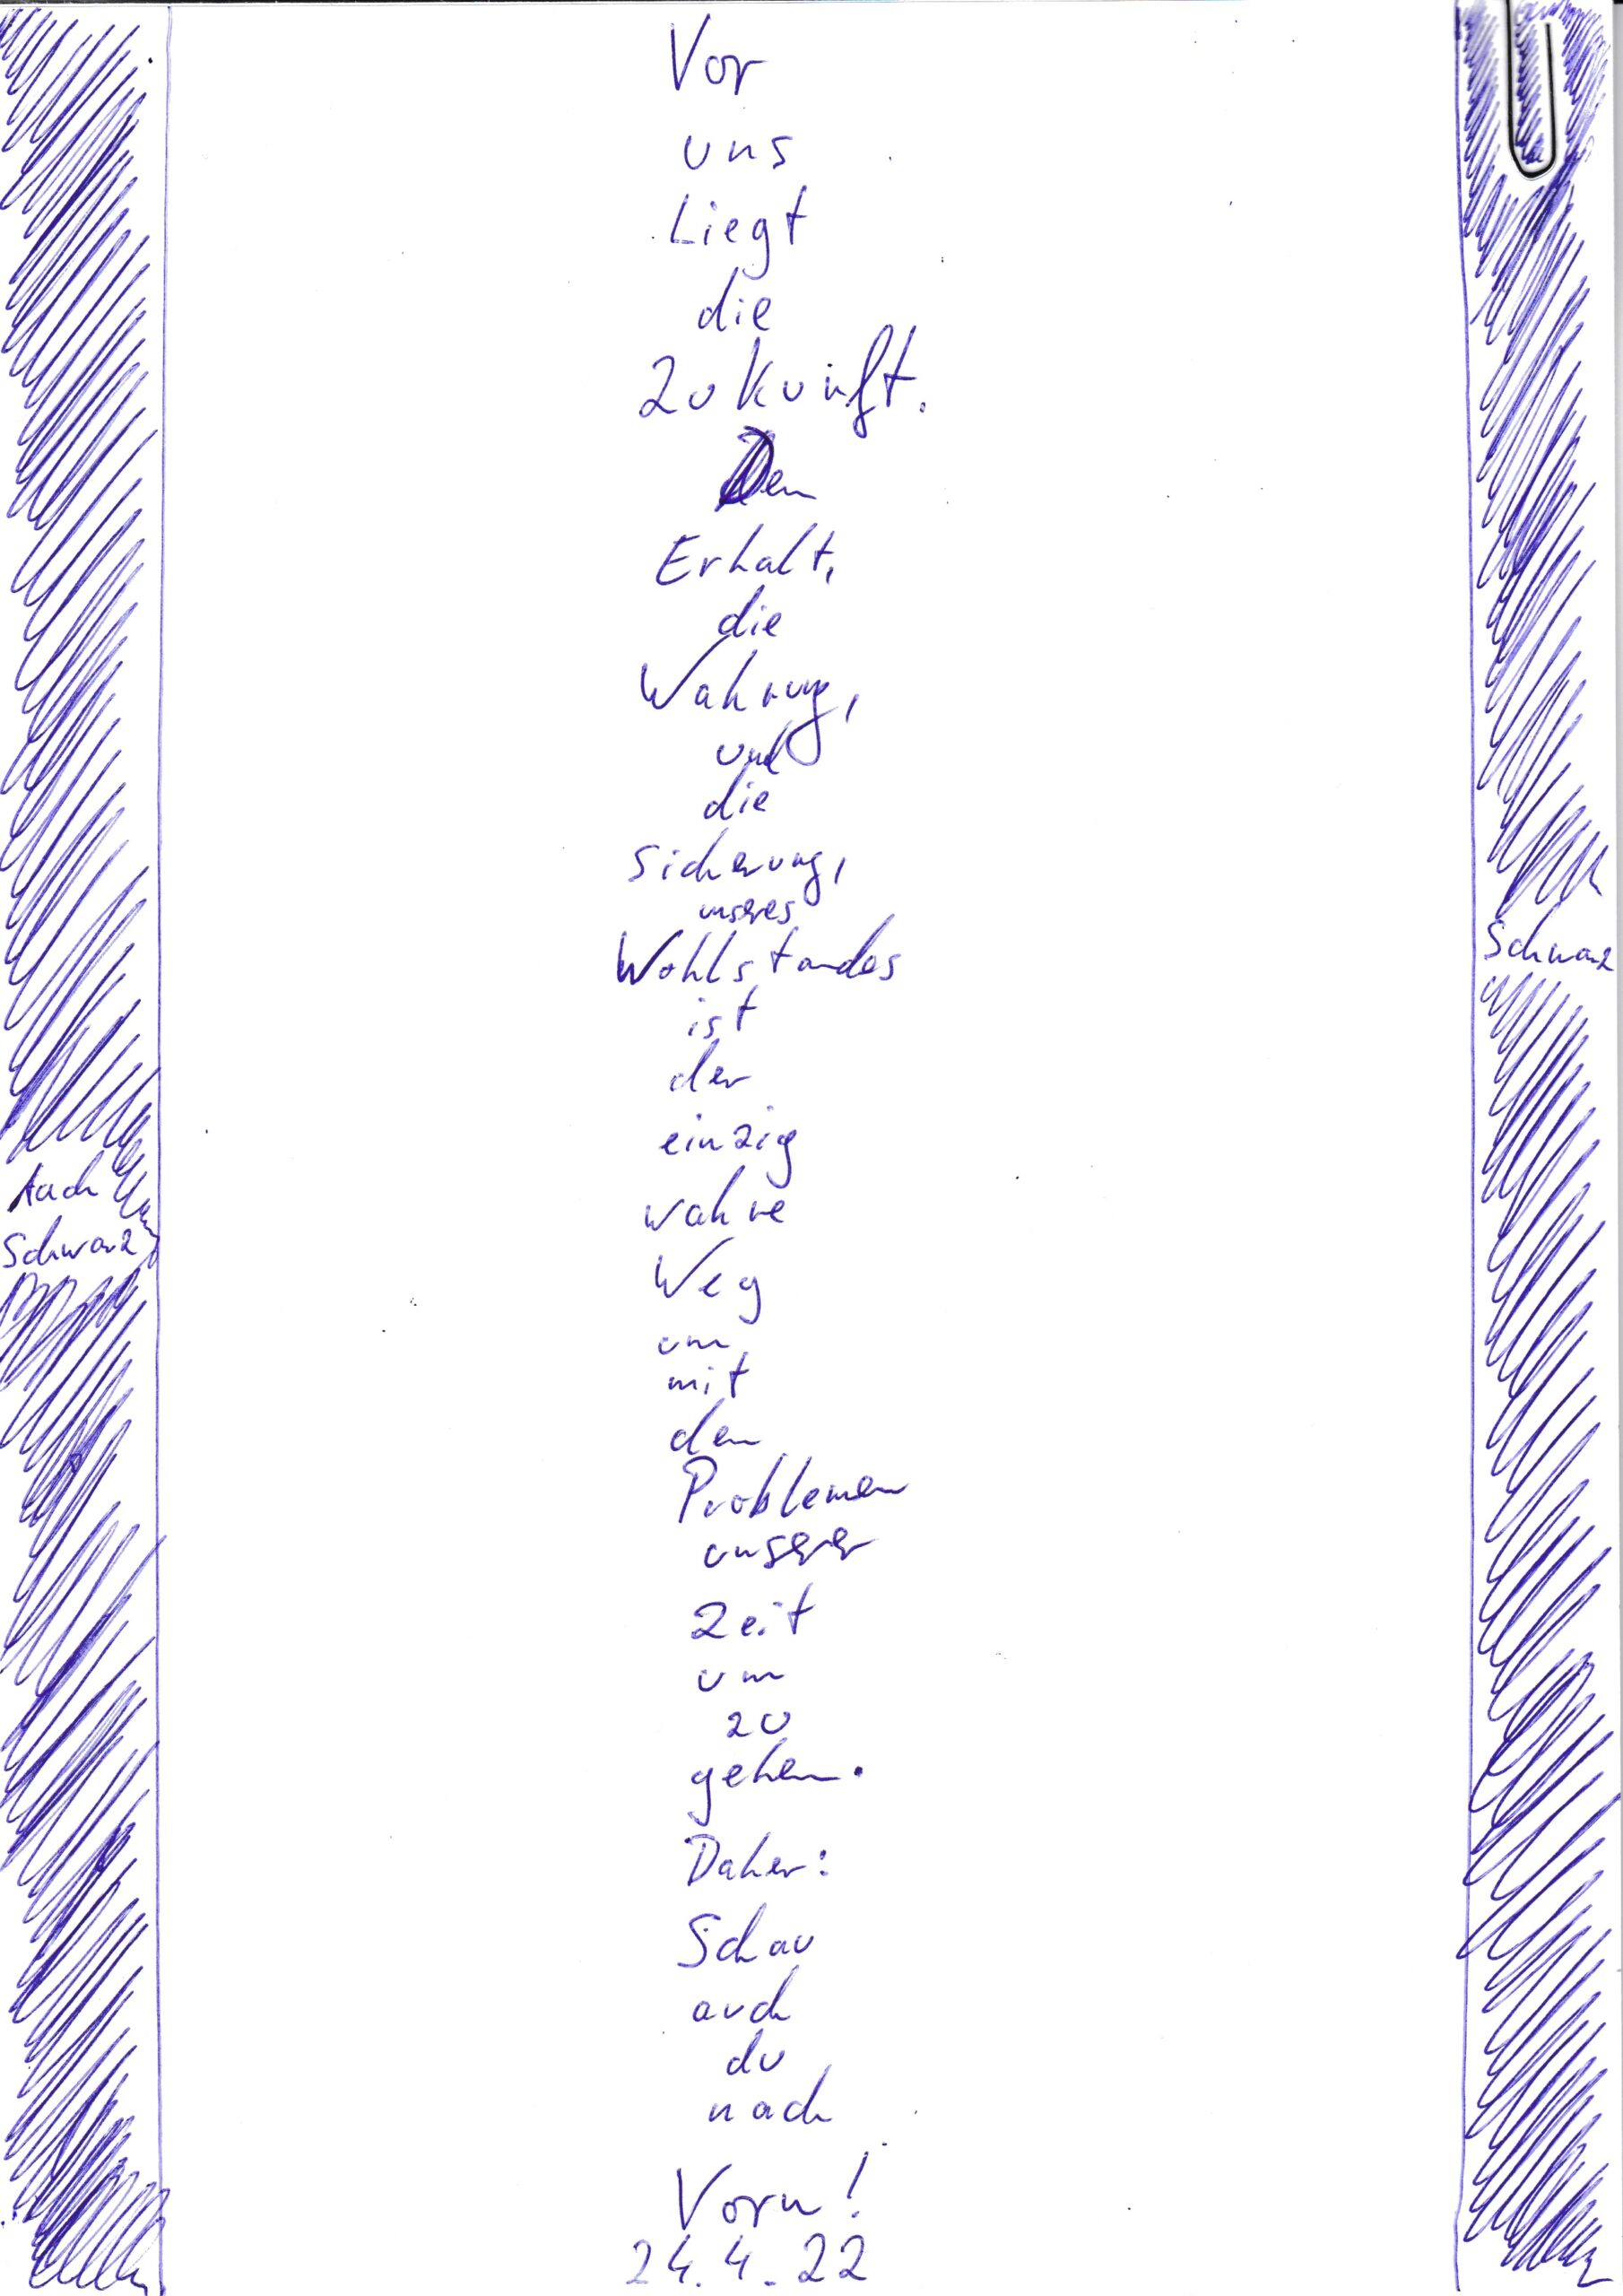 Vor
uns
Liegt
die
Zukunft.
Den
Erhalt,
die
Wahrung,
und
die
Sicherung,
unseres
Wohlstandes
ist
der
einzig
wahre
Weg
um
mit
den
Problemen
unserer
Zeit
um
zu
gehen.
Daher:
Schau
auch
du
nach
Vorn!
24.4.22
Auch
Schwarz
Schwarz